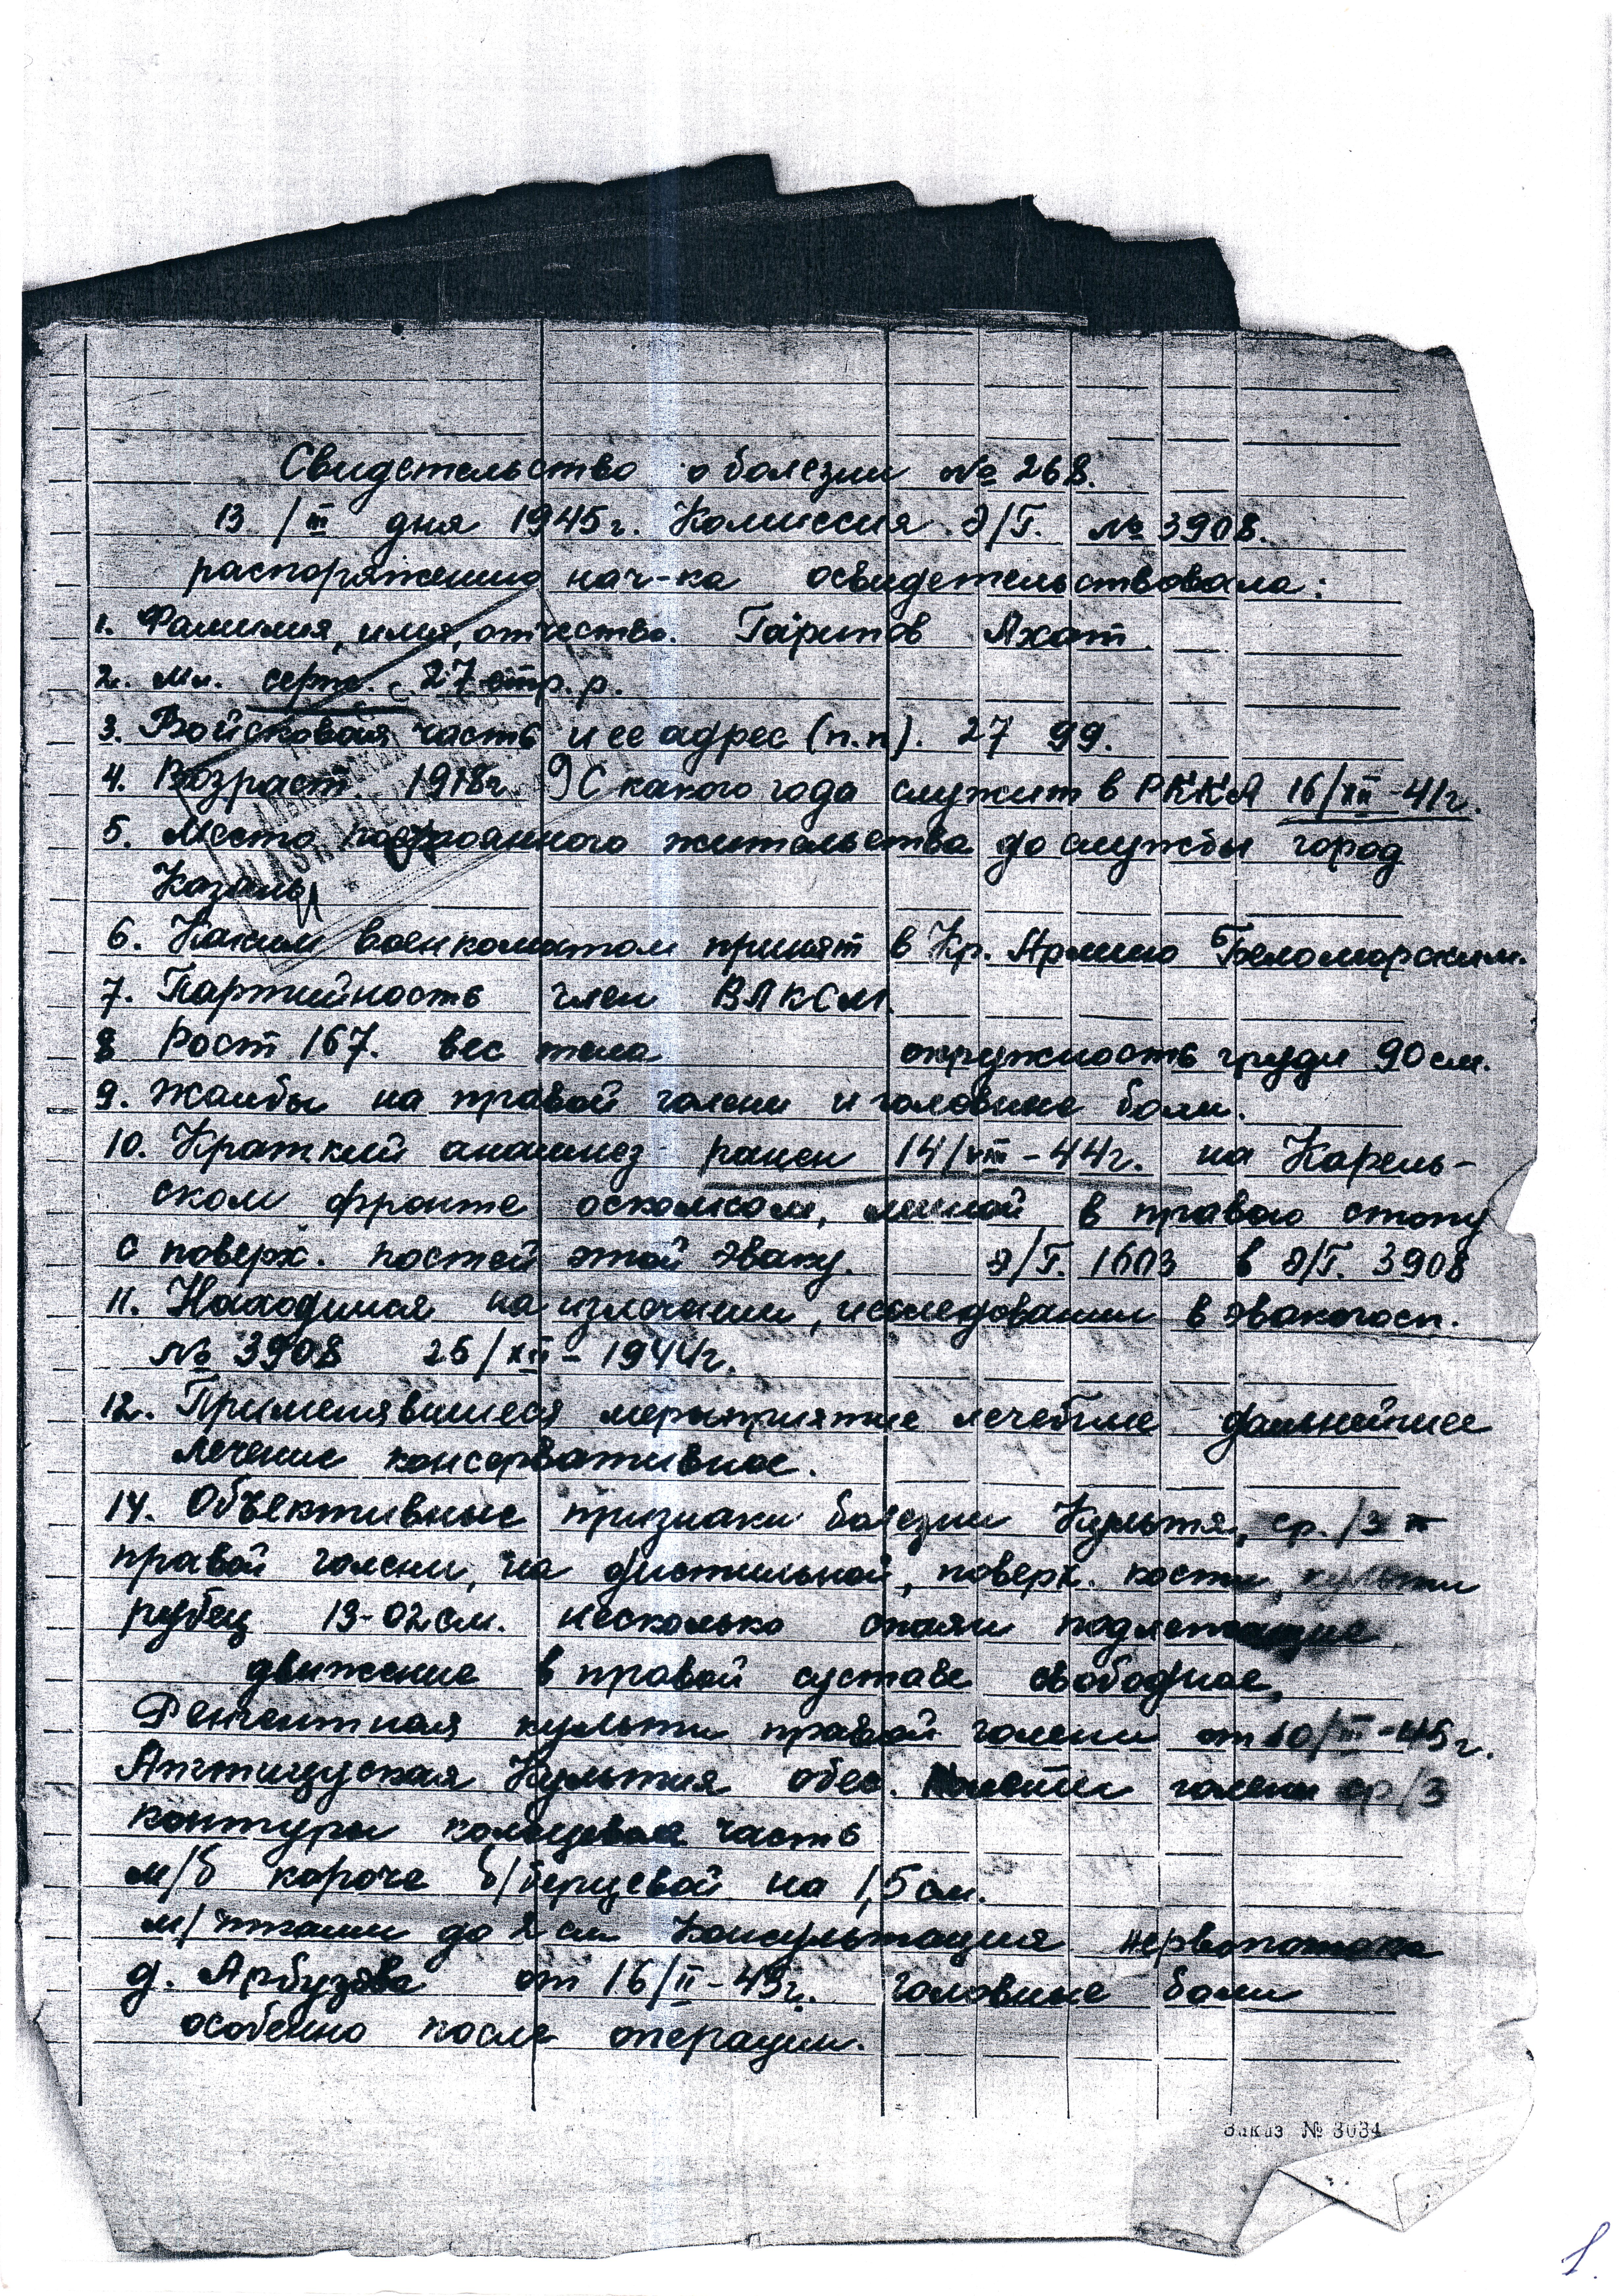 Свидетельство о болезни № 268.
13 /III дня 1945г. Комиссия Э/Г. № 3908.
распоряжению нач-ка освидетельствовала:
1. Фамилия, имя, отчество. Гарипов Ахат
2. Мл. серж. 27 стр. р.
3. Войсковая часть и ее адрес (п.п). 27 99.
4. Возраст 1918г. 9 С какого года служит в РККА 16/XII-41г.
5. Место постоянного жительства до службы город
Казань
6. Каким военкоматом принят в Кр. Армию Беломорским.
7. Партийность член ВЛКСМ.
8 Рост 167. вес тела окружность груди 90 см.
9. Жалбы на правой голени и головные боли.
10. Краткий анамнез- ранен 14/VIII-44г. на Карель-
ском фронте осколком, миной в правою стопу
с поверх. костей этой эваку. Э/Г. 1603 в Э/Г. 3908
11. Находился на излечении, исследовании в эвакогосп.
№ 3908 25/XII-1944г.
12. Применявшиеся мероприятие лечебные дальнейшее
лечение консервативное.
14. Объективные признаки болезни Культя, ср./3
правой голени, на дистильной, поверх. кости, культи
рубец 13-02 см. несколько спаян подлежащие
движение в правой суставе свободное,
культи правой голени от 10/III-45г.
Культия обес. голени ср/3
контуры кольцевая часть
м/б короче б/берцевой на 1,5 см.
м/ткани до 2 см Консультация
д. Арбузова от 16/II-45г. головные боли
особенно после операции.
Заказ № 3034
1.